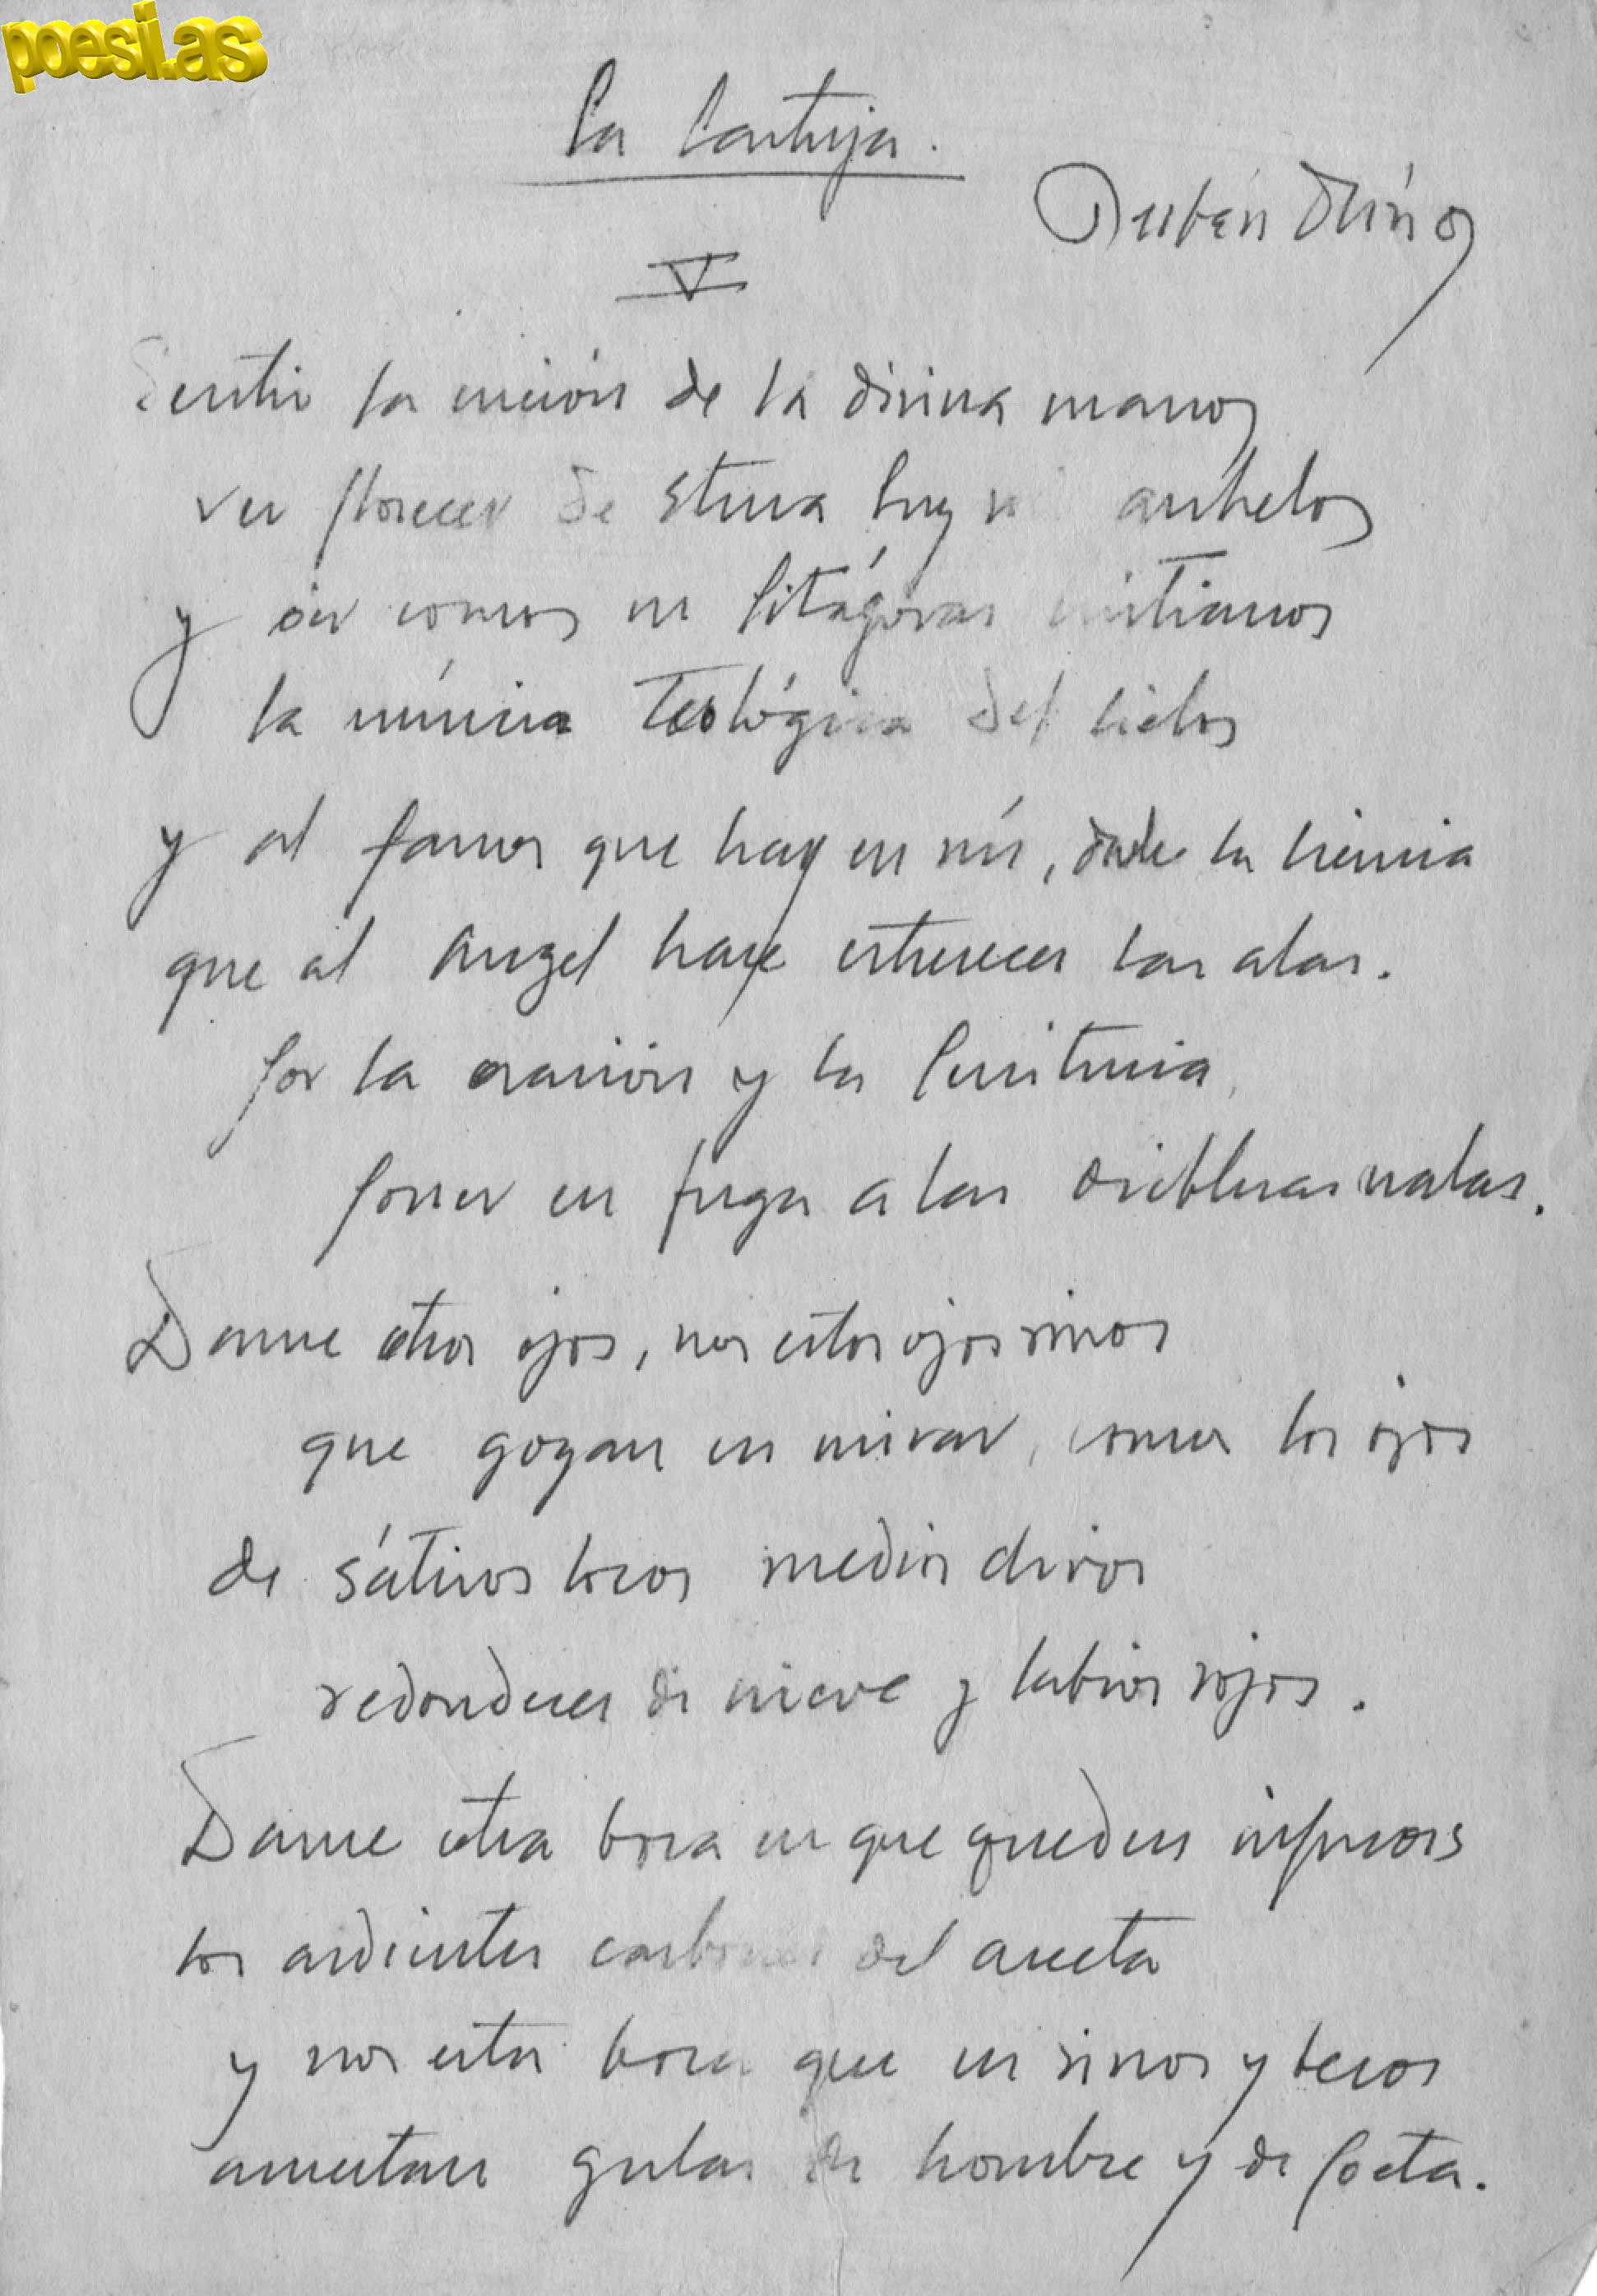 poesi.as
La Cartuja.
Rubén Darío
V
Sentir la unción de la divina mano
ver florecer de eterna luz mi anhelo
y oir como un Pitágoras cristiano
la música teológica del cielo
y al fauno que hay en mí, darle la ciencia
que al Angel hace estremecer las alas.
Por la oración y la penitencia
poner en fuga a las diablesas malas.
Dame otros ojos, no estos ojos vivos
que gozan en mirar, como los ojos
de sátiros locos medio chivos
redondeces de nieve y labios rojos.
Dame otra boca en que queden impresos
los ardientes carbones del asceta
y no esta boca que en vinos y besos
aumentan gulas de hombre y de poeta.